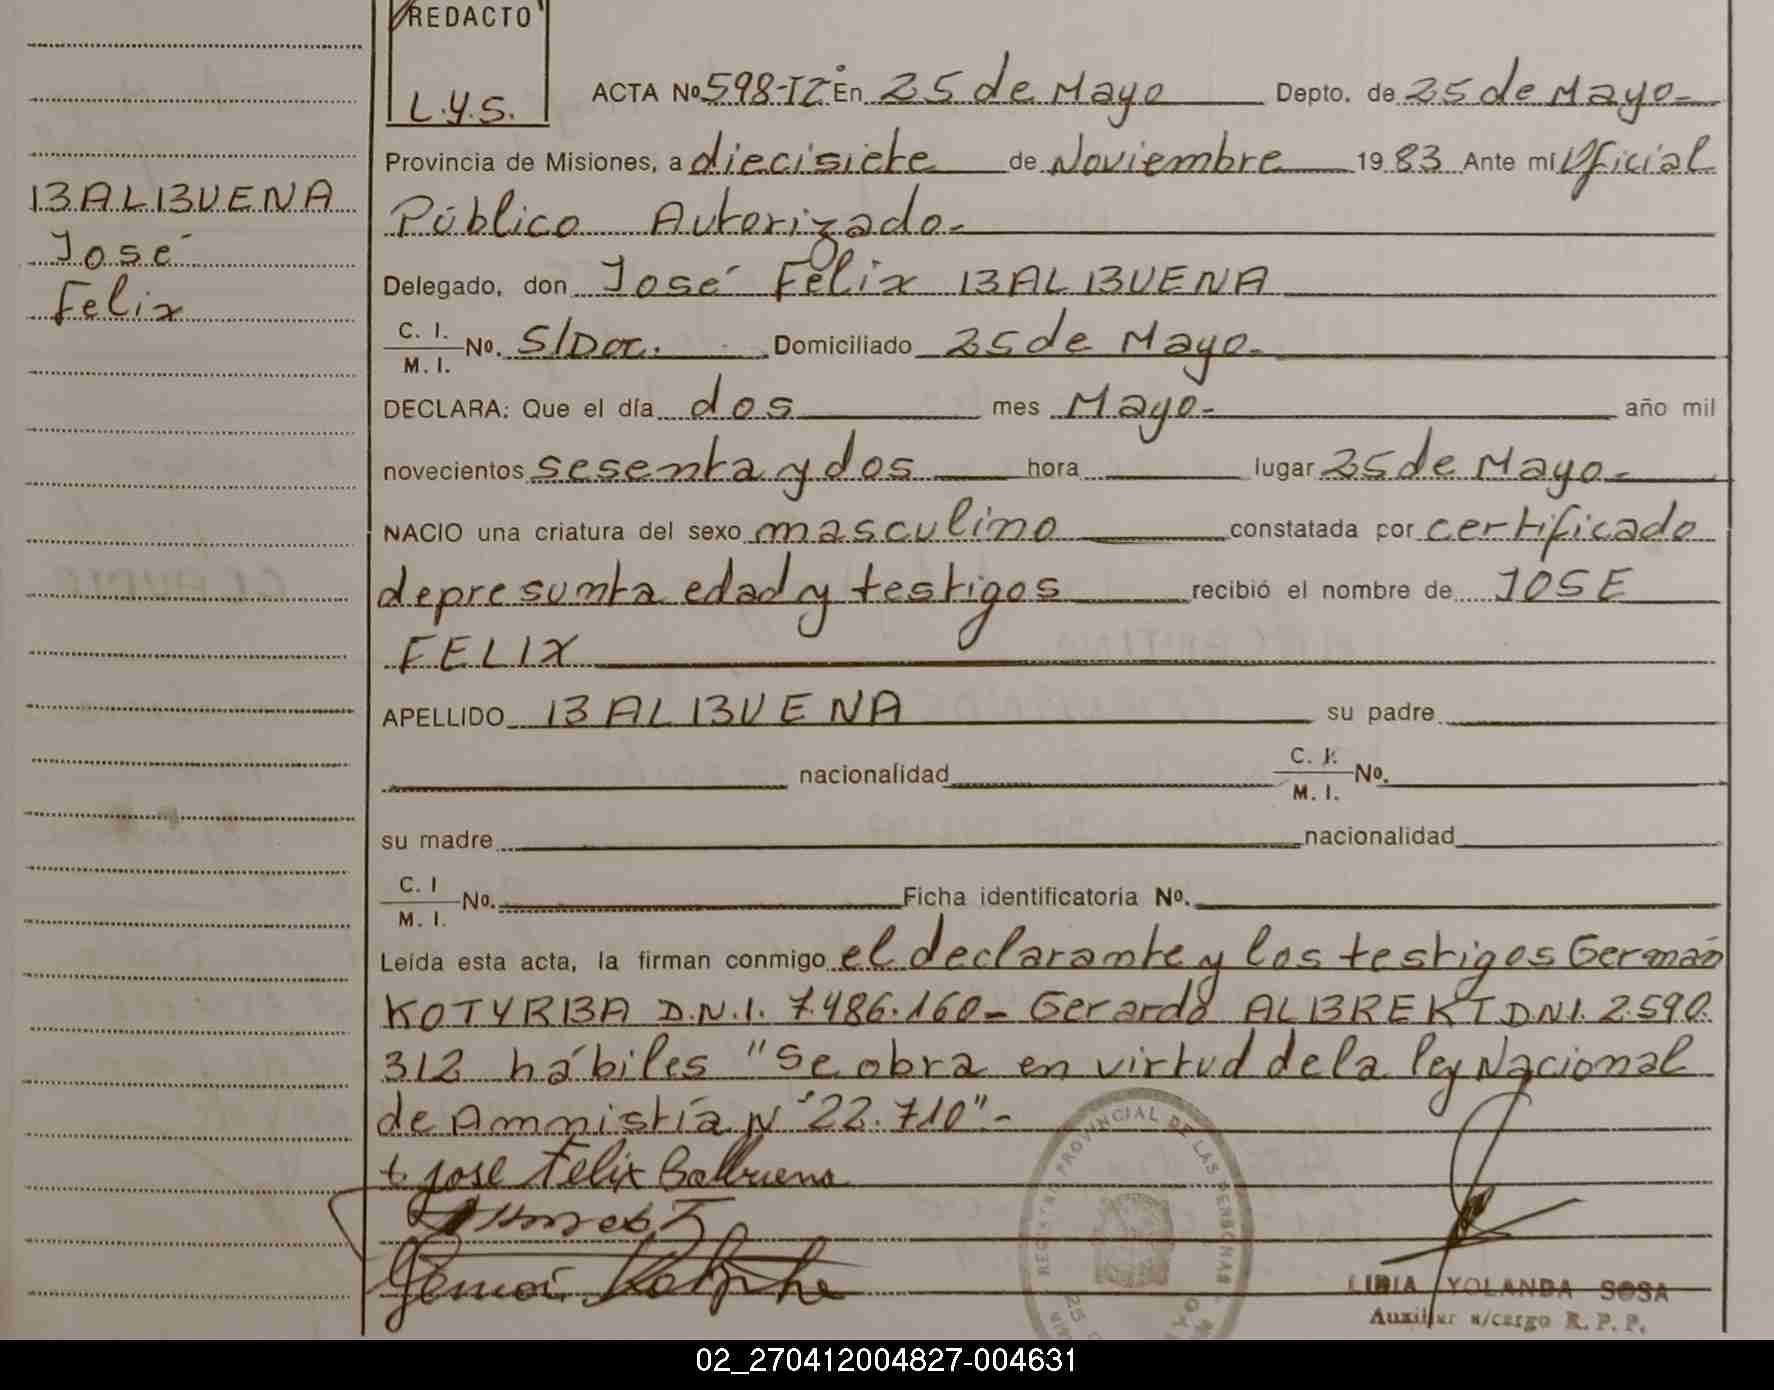 REDACTO
L.Y.S.
ACTA Nº 598-Tº En 25 de Mayo Depto. de 25 de Mayo-
Provincia de Misiones, a diecisiete de Noviembre 1983 Ante mí Oficial
Público Autorizado-
BALBUENA
José
Felix
Delegado, don José Félix BALBUENA
C. I.
M. I.
Nº. S/Doc. Domiciliado 25 de Mayo-
DECLARA: Que el día dos mes Mayo- año mil
novecientos sesenta y dos hora lugar 25 de Mayo-
NACIO una criatura del sexo masculino constatada por certificado
de presunta edad y testigos recibió el nombre de JOSE
FELIX
APELLIDO BALBUENA su padre
nacionalidad C. I.
M. I. Nº.
su madre nacionalidad
C. I
M. I.
Nº. Ficha identificatoria Nº.
Leída esta acta, la firman conmigo el declarante y los testigos Germán
KOTYRBA D.N.I. 7.486.160- Gerardo ALBREKT D.N.I. 2.590.
312 hábiles "Se obra en virtud de la ley Nacional
de Amnistía Nº 22.710".-
+ Jose Felix Balbuena
REGISTRO PROVINCIAL DE LAS PERSONAS
25
LIDIA YOLANDA SOSA
Auxiliar a/cargo R. P. P.
02_270412004827-004631